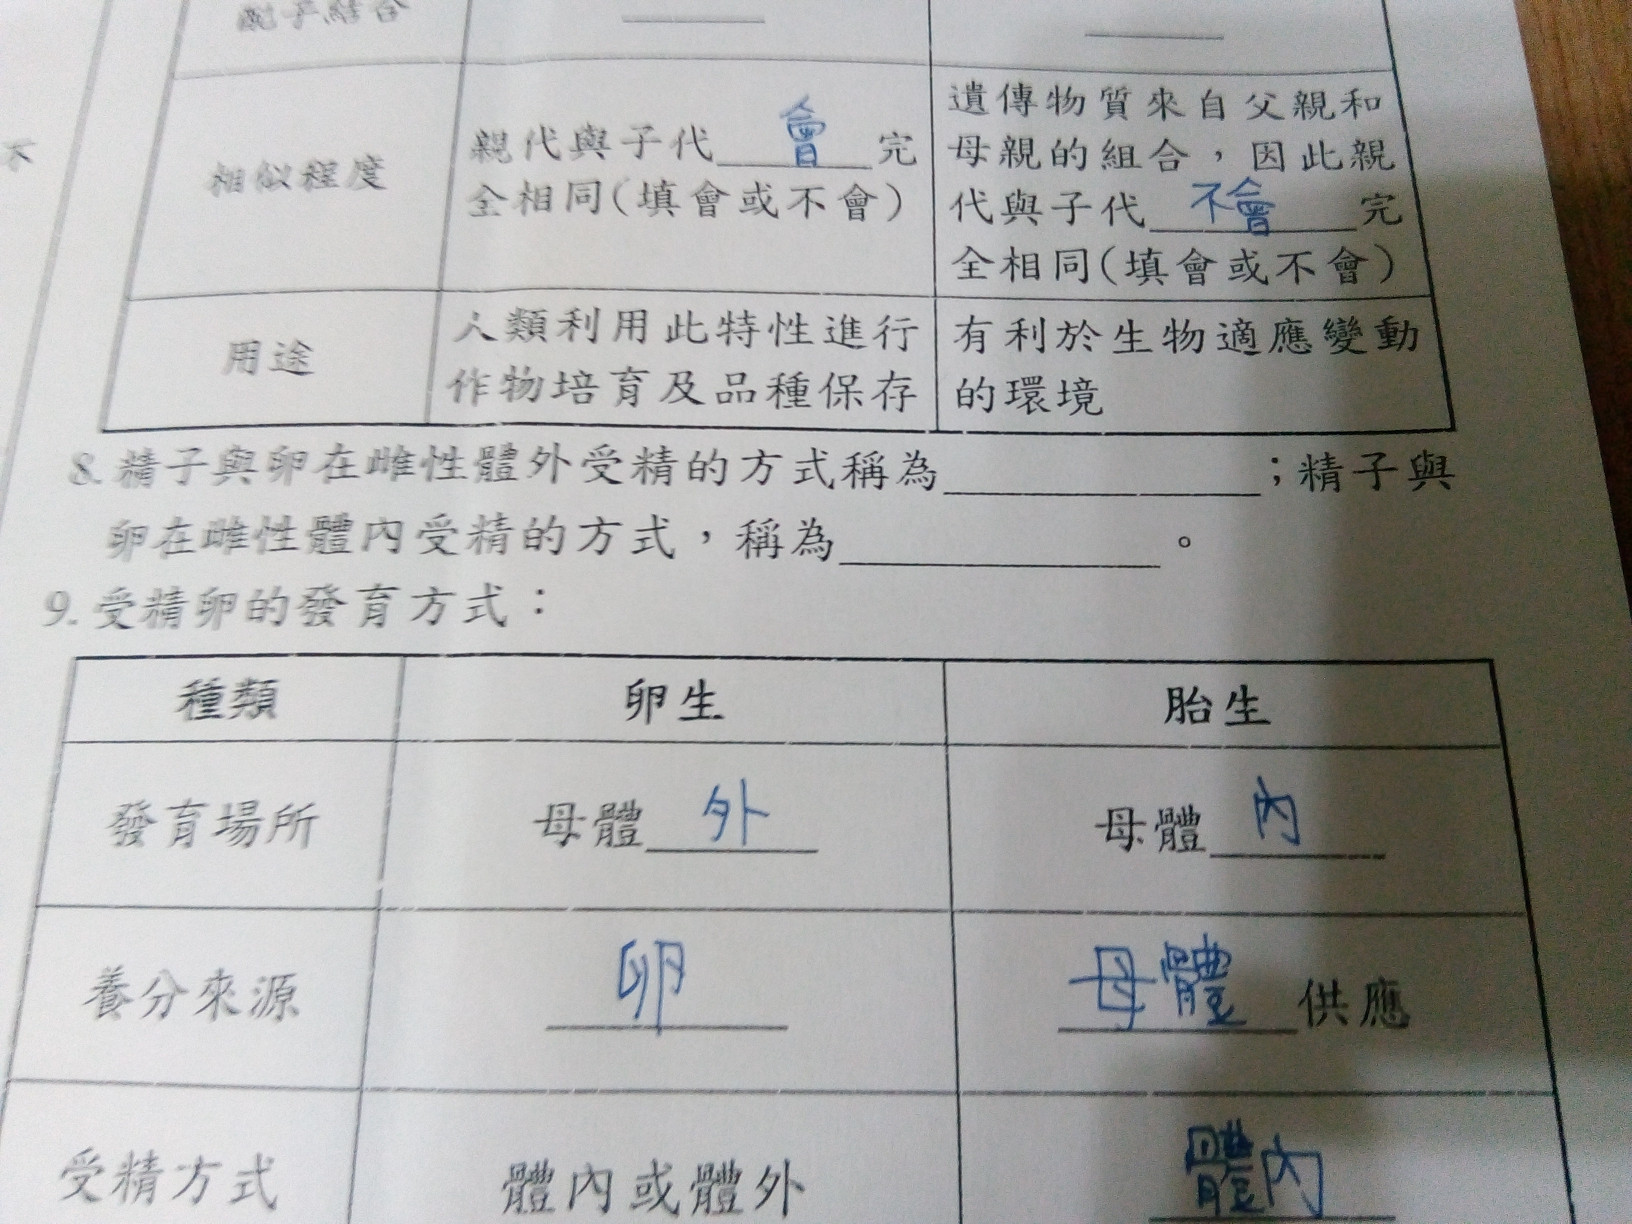 配子結合
不
相似程度
親代與子代 會 完
全相同(填會或不會)
遺傳物質來自父親和
母親的組合,因此親
代與子代 不會 完
全相同(填會或不會)
用途
人類利用此特性進行
作物培育及品種保存
有利於生物適應變動
的環境
8. 精子與卵在雌性體外受精的方式稱為____________;精子與
卵在雌性體內受精的方式,稱為____________。
9. 受精卵的發育方式:
種類 卵生 胎生
發育場所 母體 外 母體 內
養分來源 卵 母體 供應
受精方式 體內或體外 體內